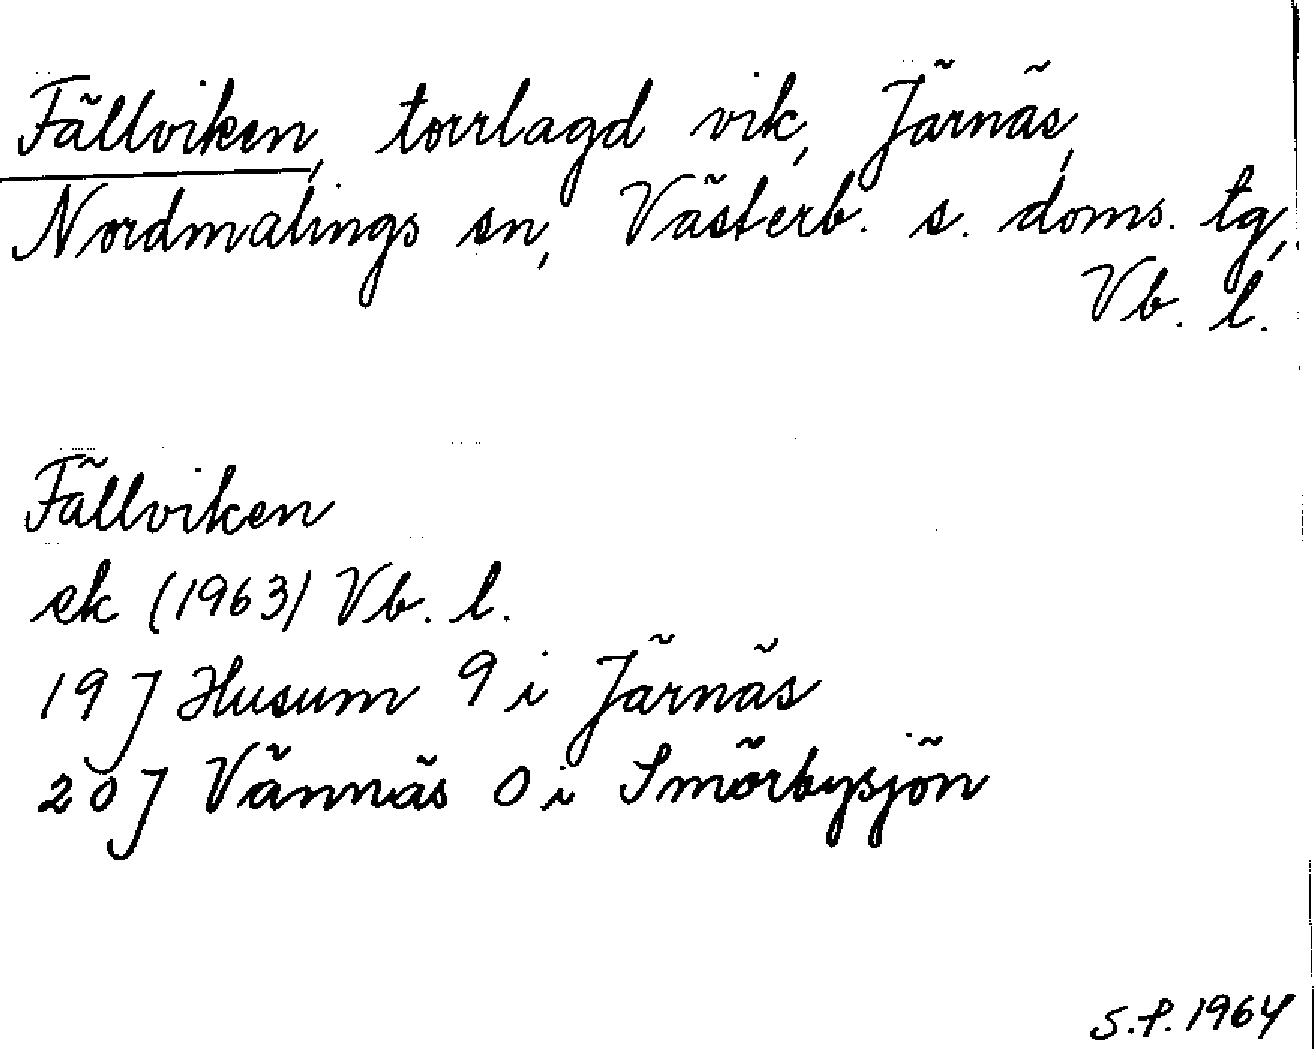 Fällviken, torrlagd vik, Järnäs,
Nordmalings sn, Västerb. s. doms. tg,
Vb. l.
Fällviken
ek (1963) Vb. l.
19 J Husum 9 i Järnäs
20 J Vännäs 0 i Smörbysjön
S.P. 1964